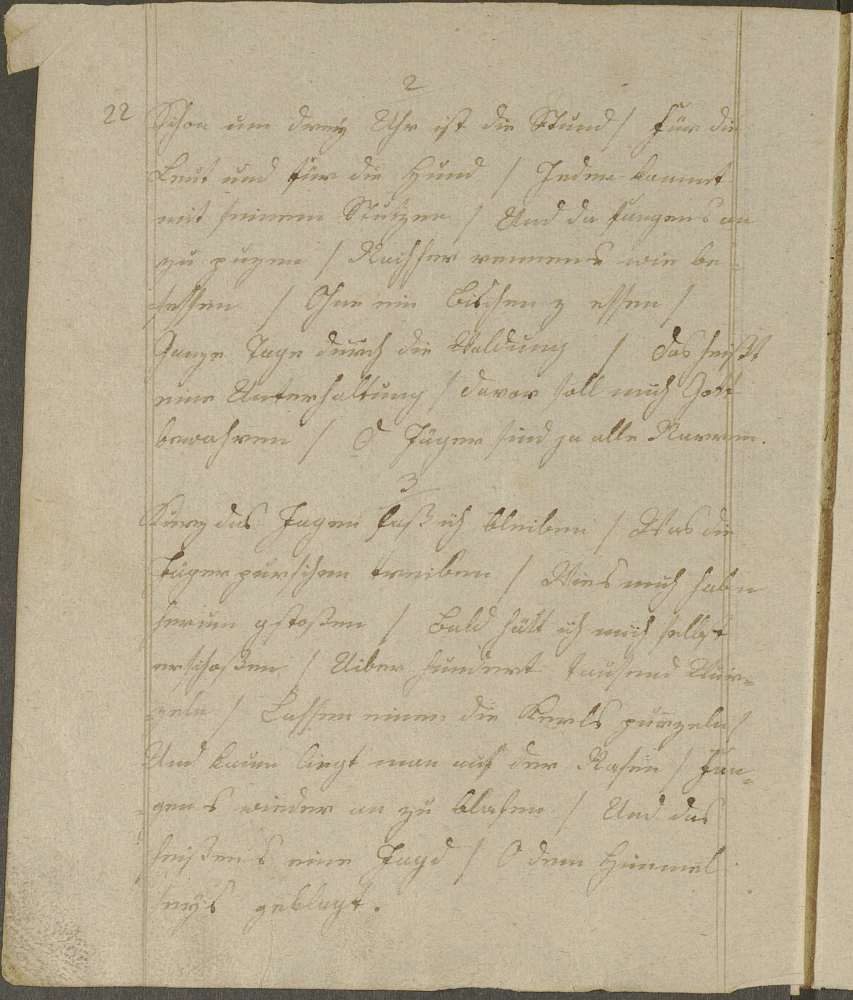 2
22 Schon um dreÿ Uhr ist die Stund / Für die
Leut und für die Hund / Jeder kommt
mit seinem Stutzen / Und da fangens an
zu puzen / Nachher rennens wie be-
sessen / Ohne ein Bischen z essen /
Ganze Tage durch die Waldung / das heißt
eine Unterhaltung / davor soll mich Gott
bewahren / O Jäger sind ja alle Narren.
3
Kurz das Jagen laß ich bleiben / Was die
Jägerpurschen treiben / Wies mich habn
herum gstoßen / Bald hätt ich mich selbst
erschoßen / Uiber hundert tausend Wur=
zeln / Lassen einen die Kerls purzeln /
Und kaum liegt man auf der Nasen / Fan=
gen s wieder an zu blasen / Und das
heißen s eine Jagd / O dem Himmel
seÿs geklagt.